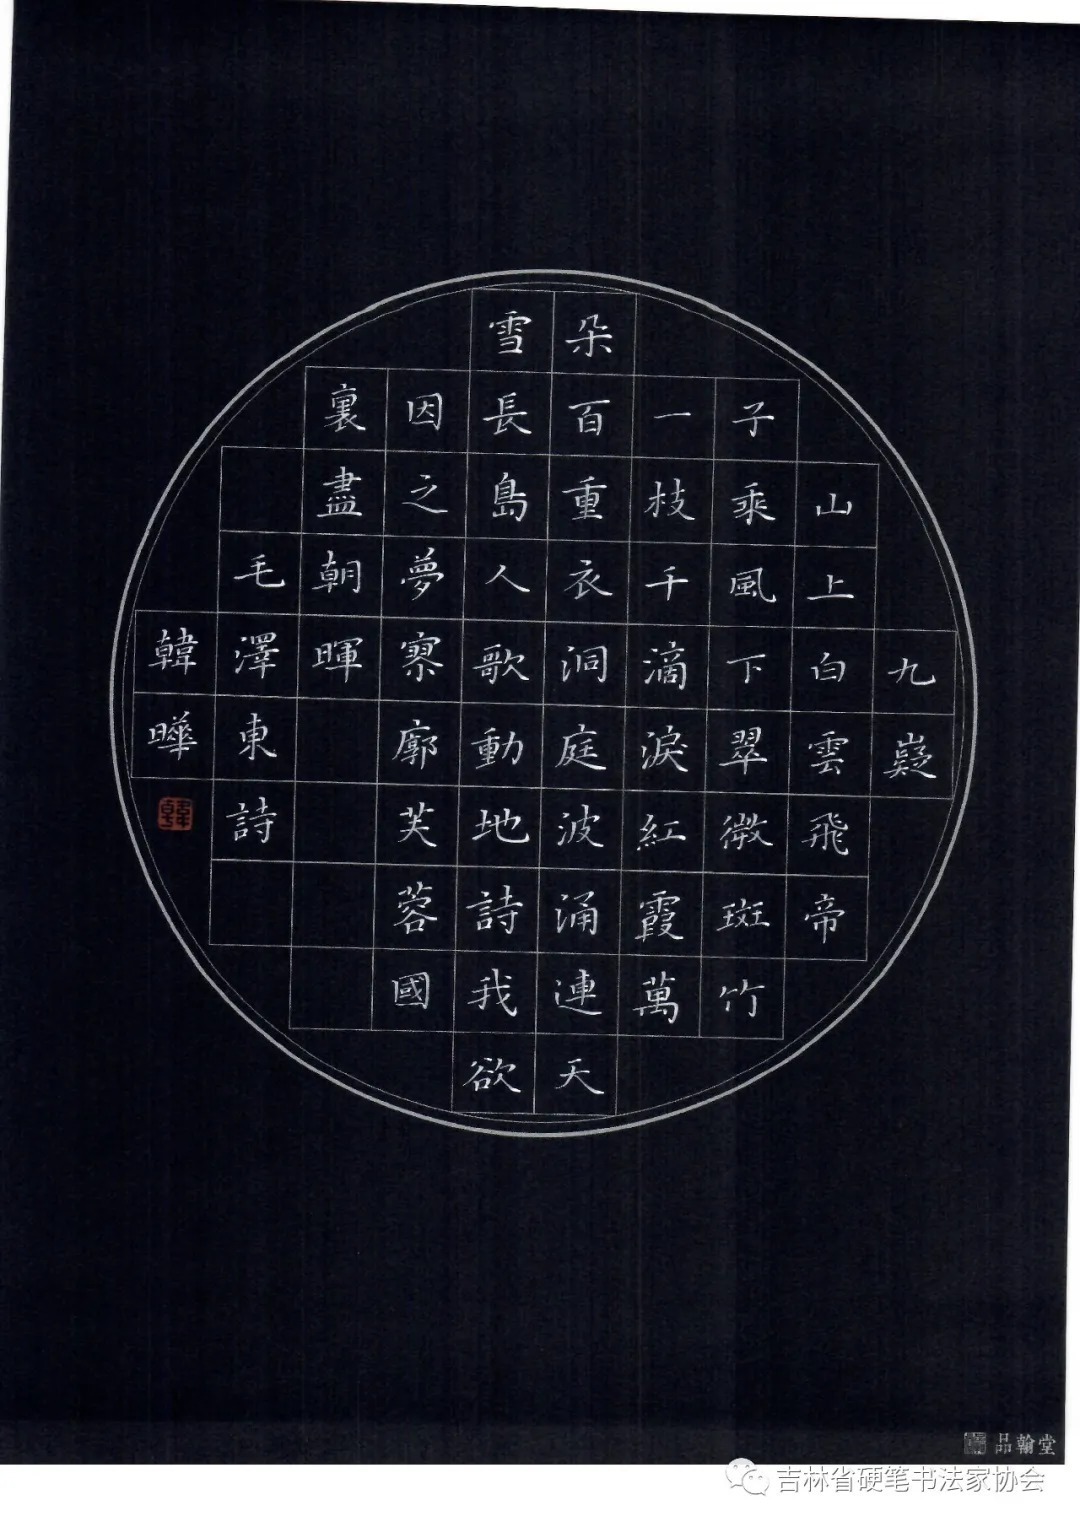 九嶷
山上白雲飛帝
子乘風下翠微斑竹
一枝千滴淚紅霞萬
朵百重衣洞庭波涌連天
雪長島人歌動地詩我欲
因之夢寥廓芙蓉國
裏盡朝暉
毛澤東詩
韓曄
韓
品翰堂
吉林省硬笔书法家协会